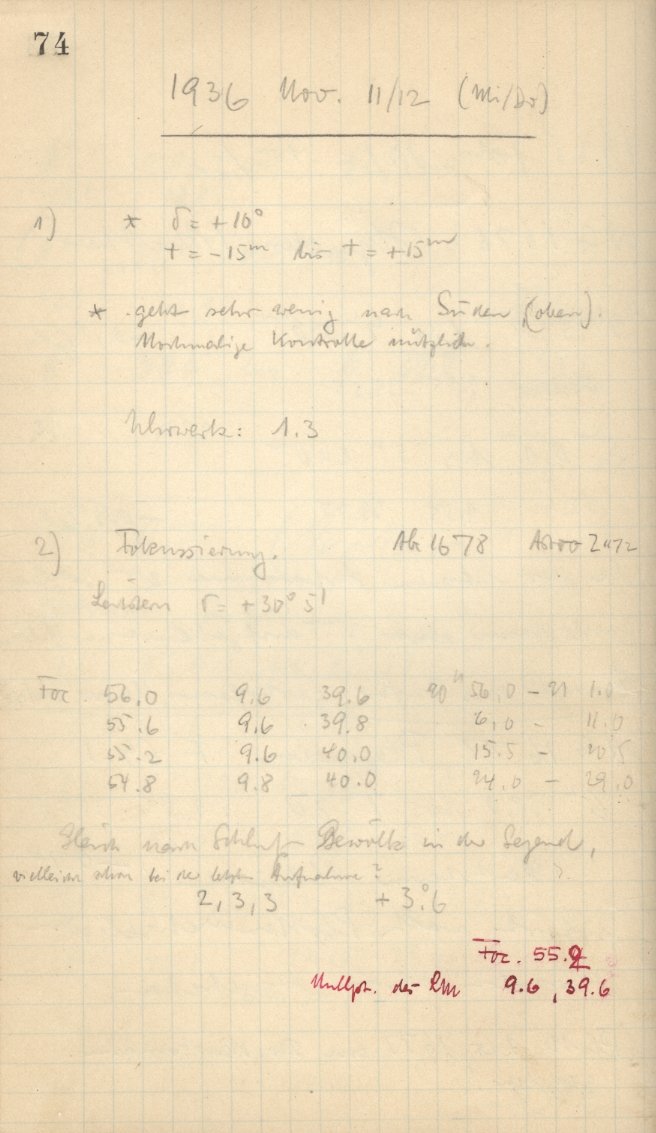 74
1936 Nov. 11/12 (Mi/Do)
1) * δ = +10°
t = -15ᵐ bis t = +15ᵐ
* geht sehr wenig nach Süden (oben).
Nochmalige Kontrolle nützlich.
Uhrwerk: 1.3
2) Fokussierung. 1678 Astro
Leitstern δ = +30° 5'
Foc. 56.0 9.6 39.6 20ʰ 56.0 - 21 1.0
55.6 9.6 39.8 6.0 - 11.0
55.2 9.6 40.0 15.5 - 20.5
54.8 9.8 40.0 24.0 - 29.0
Gleich nach Schluß Bewölk in der Gegend,
vielleicht schon bei der letzten Aufnahme?
2, 3, 3 + 3.°6
Foc. 55.2
Nullpt. des 9.6, 39.6